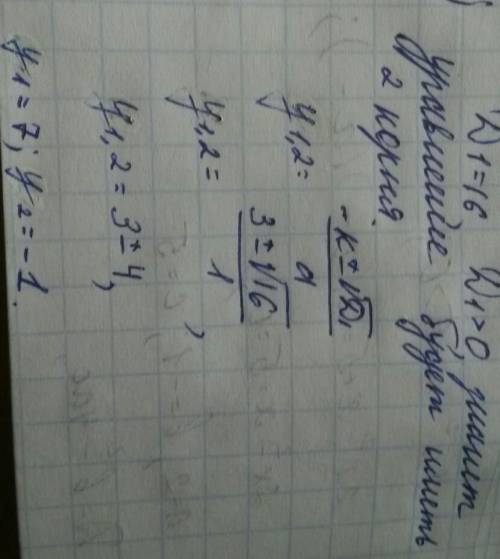 D₁=16 D₁>0 значит
уравнение будет иметь
2 корня.
y₁,₂ = (-к±√D₁)/a
y₁,₂ = (3±√16)/1,
y₁,₂ = 3±4,
y₁ = 7; y₂ = -1.